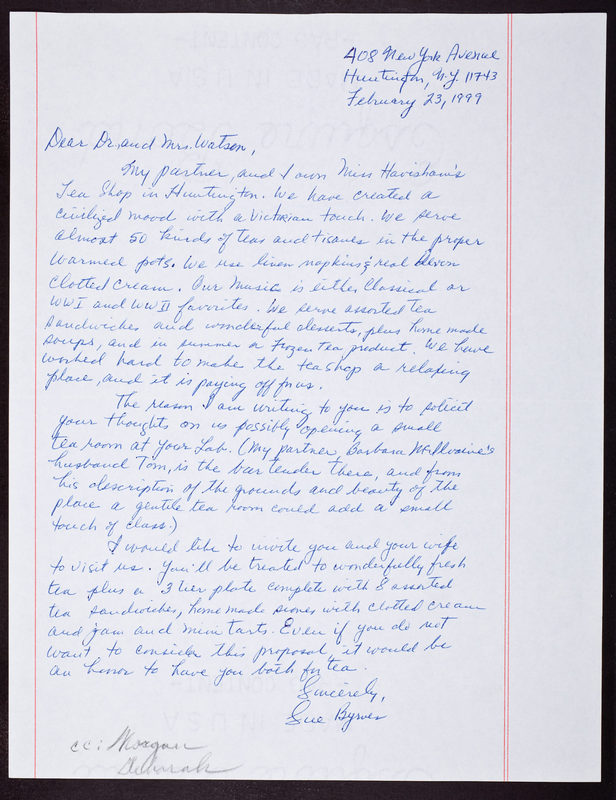 408 New York Avenue
Huntington, N.Y. 11743
February 23, 1999
Dear Dr. and Mrs. Watson,
My partner, and I own Miss Havisham's
Tea Shop in Huntington. We have created a
civilized mood with a Victorian touch. We serve
almost 50 kinds of teas and tisanes in the proper
warmed pots. We use linen napkins & real Devon
Clotted Cream. Our music is either Classical or
WWI and WWII favorites. We serve assorted tea
sandwiches and wonderful desserts, plus home made
soups, and in summer a frozen tea product. We have
worked hard to make the tea shop a relaxing
place, and it is paying off for us.
The reason I am writing to you is to solicit
your thoughts on us possibly opening a small
tea room at your Lab. (My partner, Barbara McIlvaine's
husband Tom, is the bartender there, and from
his description of the grounds and beauty of the
place a gentile tea room could add a small
touch of class.)
I would like to invite you and your wife
to visit us. You'll be treated to wonderfully fresh
tea plus a 3 tier plate complete with 8 assorted
tea sandwiches, home made scones with clotted cream
and jam and mini tarts. Even if you do not
want to consider this proposal, it would be
an honor to have you both for tea.
Sincerely,
Sue Byrnes
cc: Morgan
Deborah